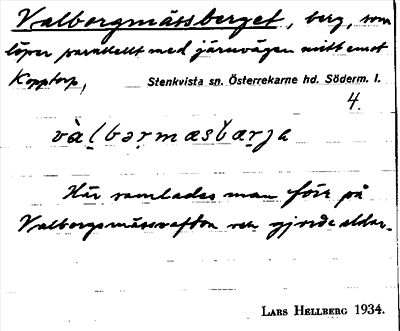 Valborgmässberget, berg, som
löper parallellt med järnvägen mitt emot
Kopptorp,
Stenkvista sn. Österrekarne hd. Söderm. l.
4.
Här samlades man förr på
Valborgsmässoafton och gjorde eldar.
LARS HELLBERG 1934.